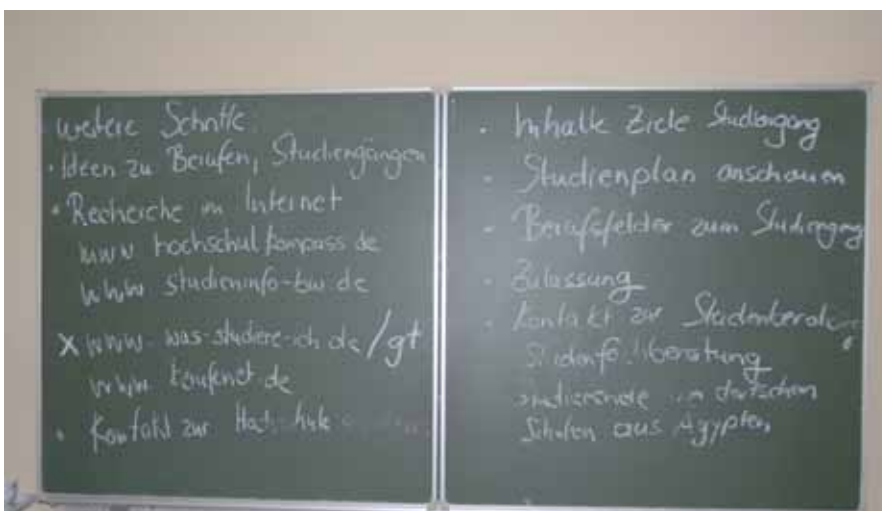 weitere Schritte
· Ideen zu Berufen, Studiengängen
· Recherche im Internet
www hochschulkompass.de
www studieninfo-bw.de
x www. was-studiere-ich.de/gt
www.
· Kontakt zur Hochschule
· Inhalte Ziele Studiengang
- Studienplan anschauen
- Berufsfelder zum Studiengang
- Zulassung
- Kontakt zur Studienberatung
beratung
Studierende deutschen
Schulen aus Ägypten